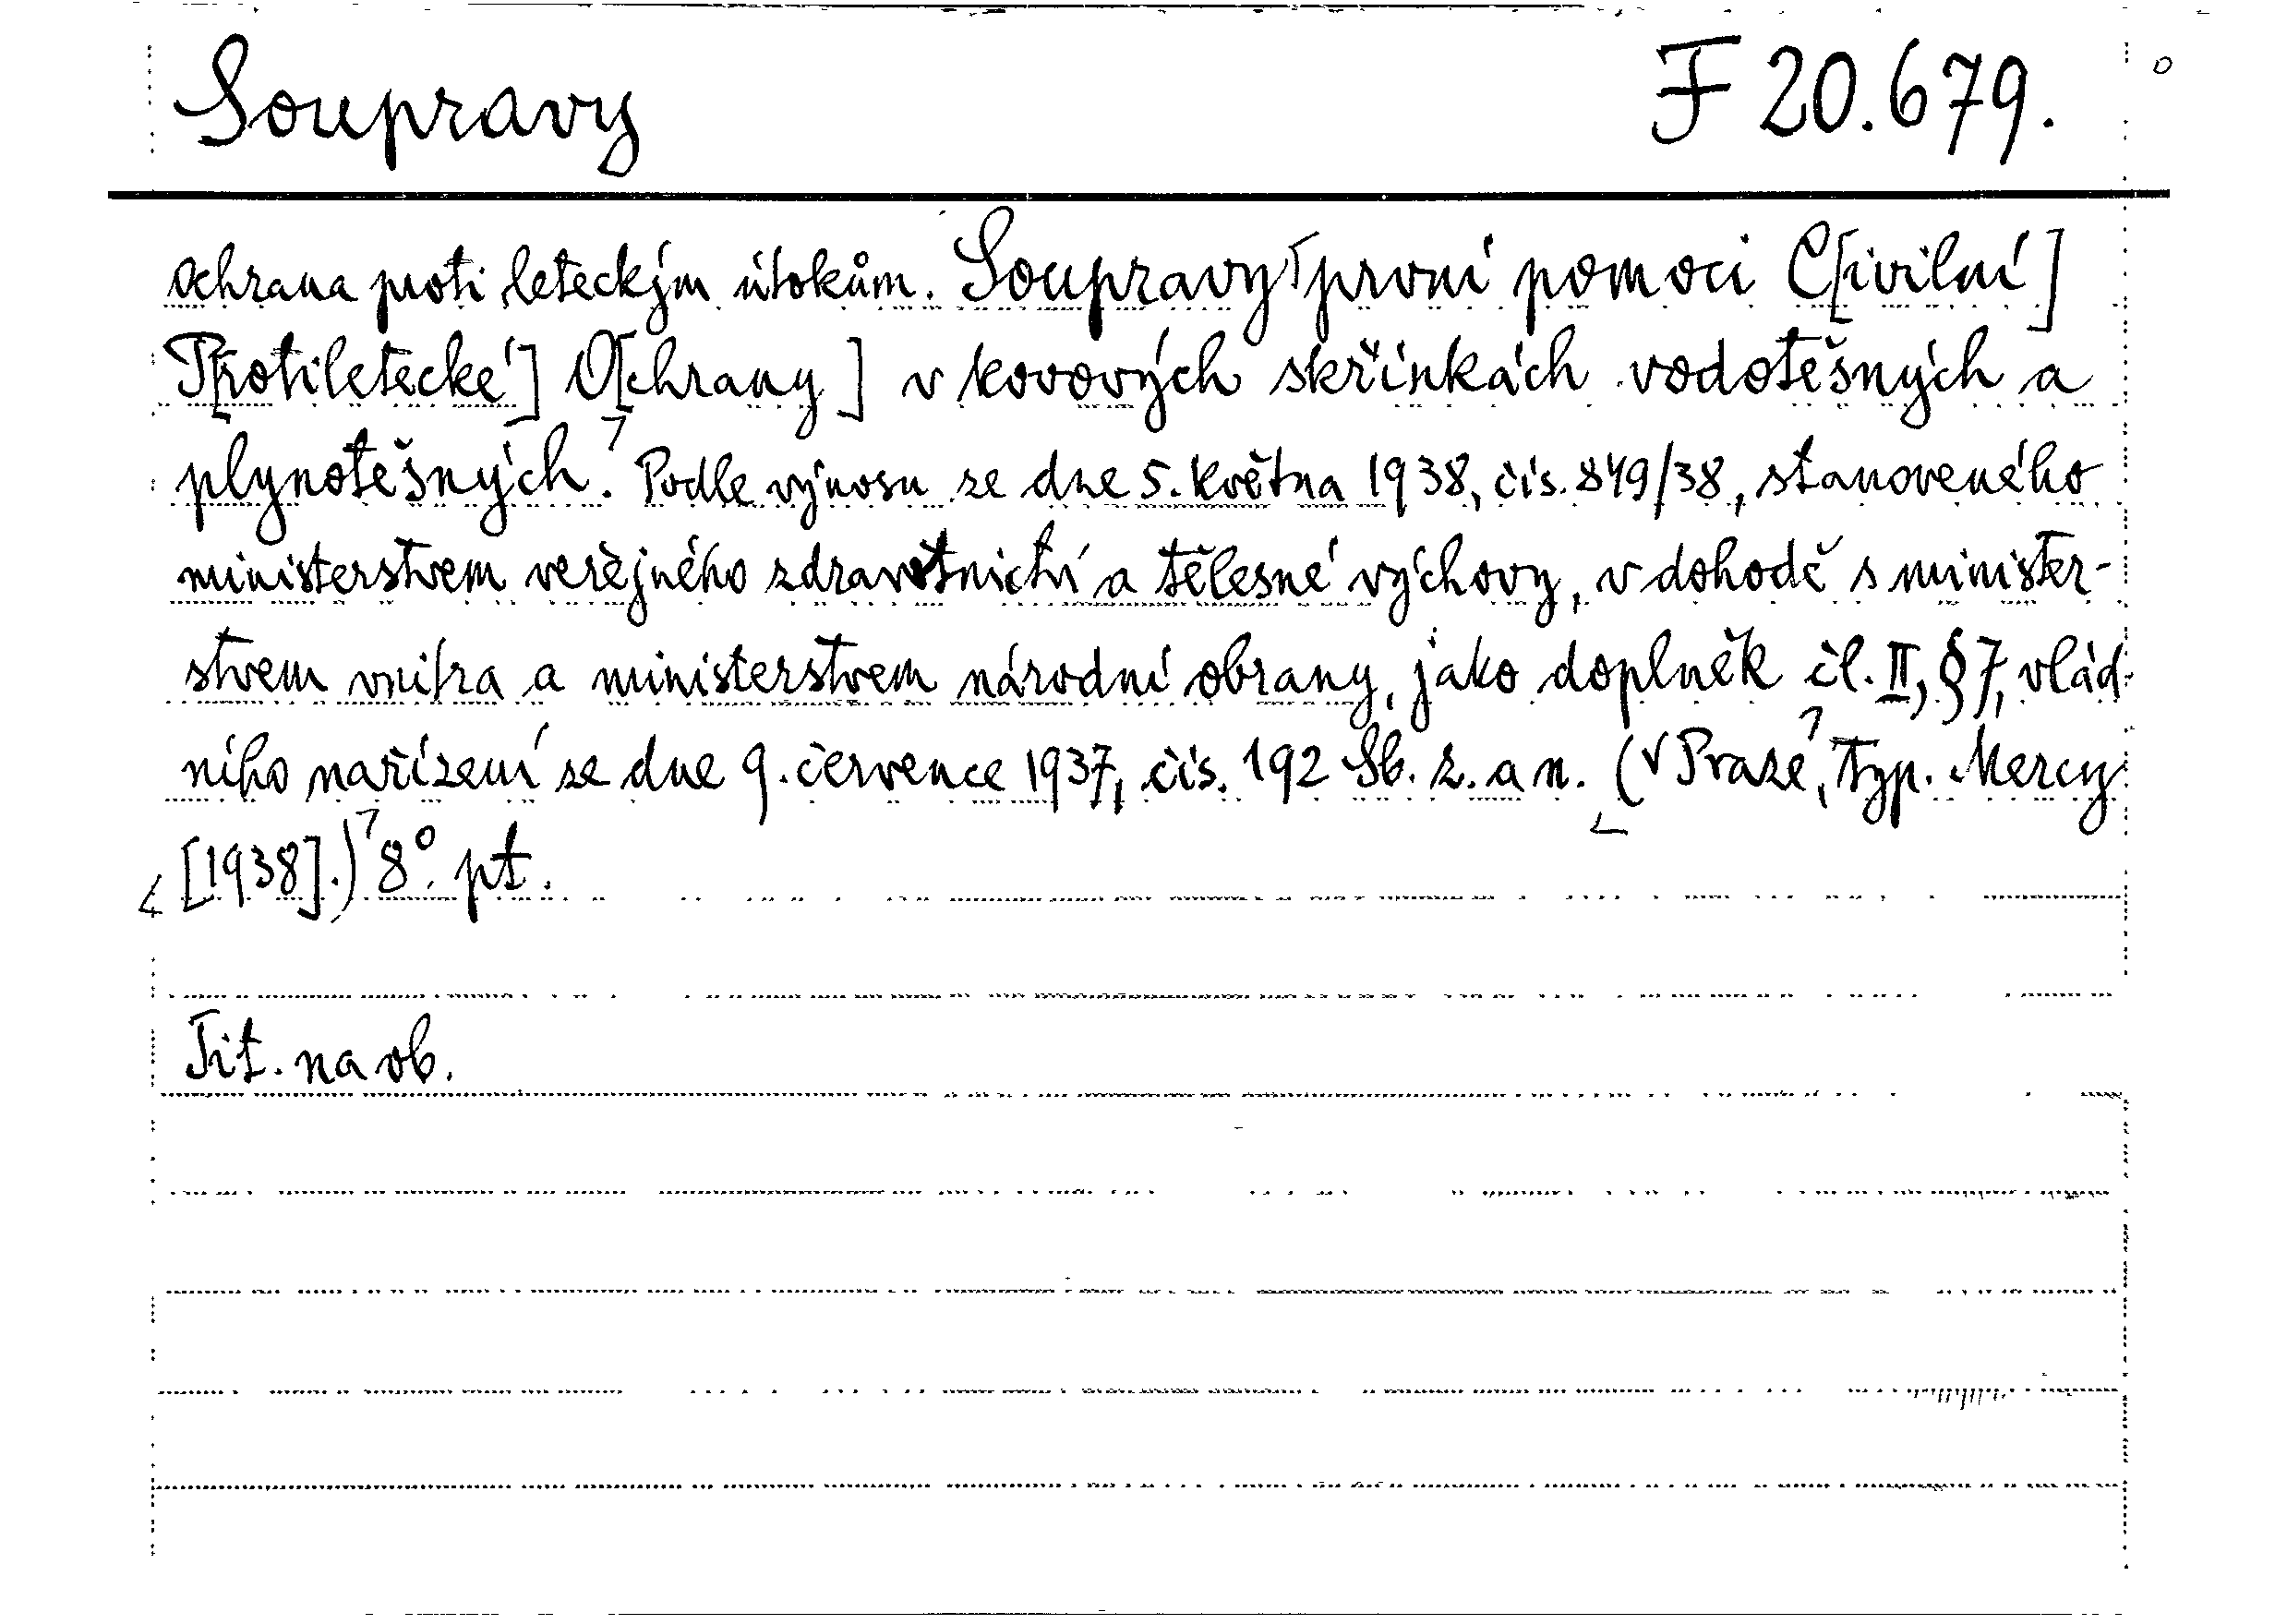 Soupravy F 20.679.
Ochrana proti leteckým útokům. Soupravy první pomoci C[ivilní]
P[rotiletecké] O[chrany] v kovových skřínkách vodotěšných a
plynotěšných. Podle výnosu ze dne 5. května 1938, čís. 849/38, stanoveného
ministerstvem veřejného zdravotnictví a tělesné výchovy, v dohodě s minister-
stvem vnitra a ministerstvem národní obrany, jako doplněk čl. II, § 7, vlád-
ního nařízení ze dne 9. července 1937, čís. 192 Sb. z. a n. (V Praze, Typ. Mercy
[1938].) 8°. pt.
Tit. na ob.